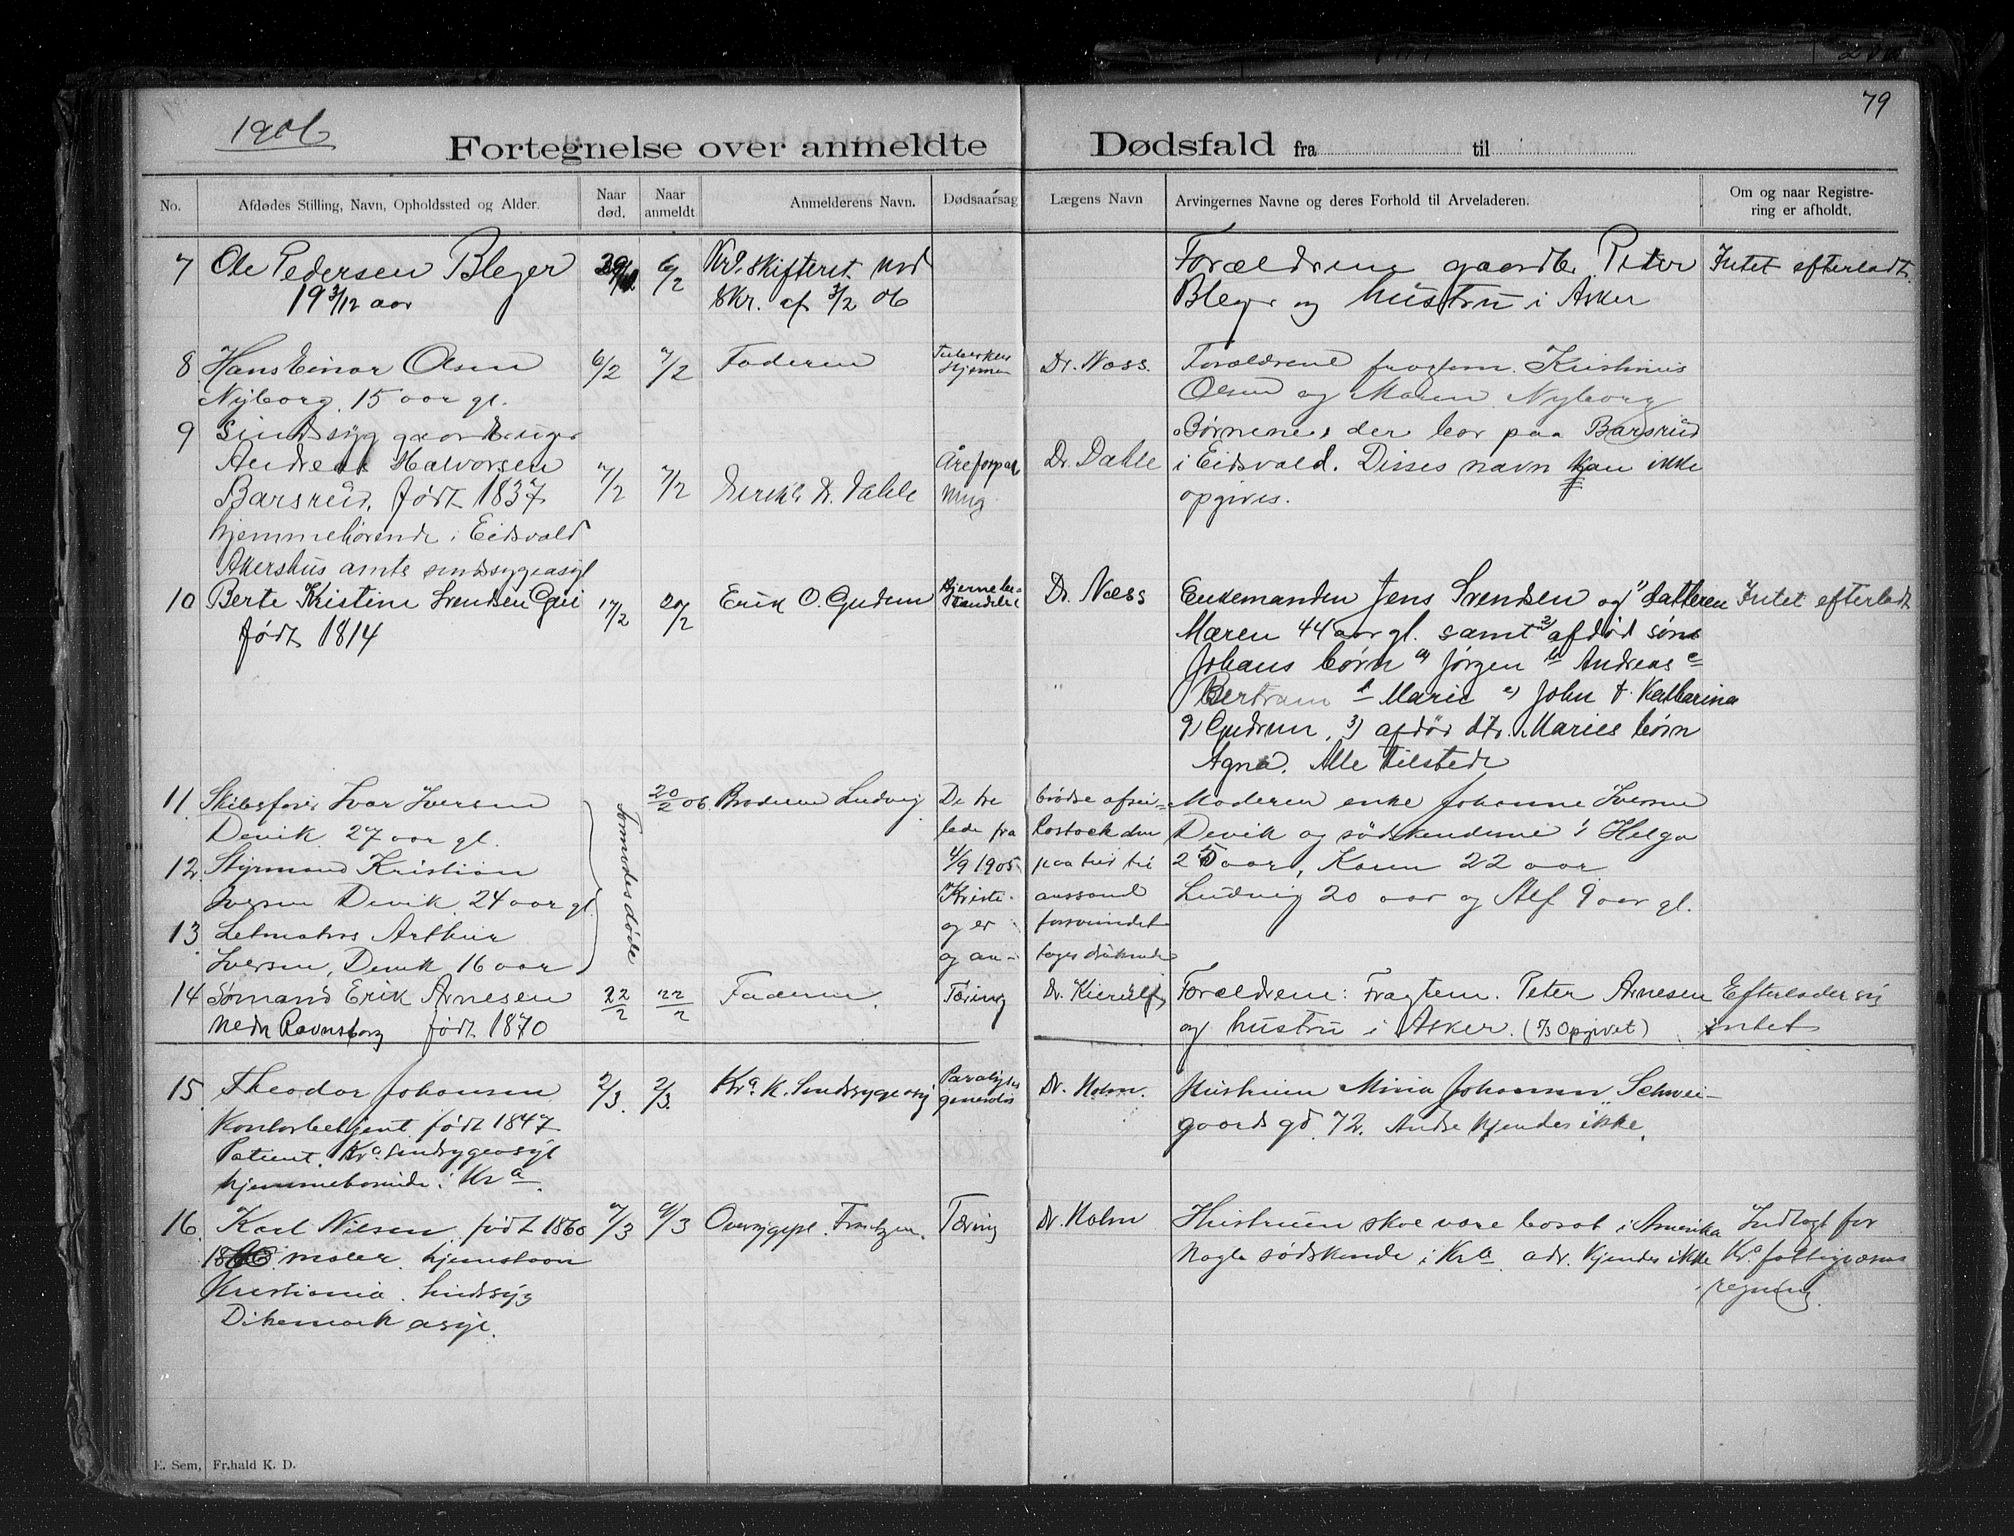 79
1906
Fortegnelse over anmeldte Dødsfald fra til
No. Afdødes Stilling, Navn, Opholdssted og Alder. Naar død. Naar anmeldt Anmelderens Navn. Dødsaarsag Lægens Navn Arvingernes Navne og deres Forhold til Arveladeren. Om og naar Registrering er afholdt.
7 Ole Pedersen Bleger 6/2 Kra. skifteret ved Forældrene gaardbr. Peter Intet efterladt.
19 3/12 aar skr. af 3/2 06 Bleger og hustru i Asker
8 Hans Einar Olsen 6/2 7/2 Faderen Dr. Næss. Forældrene fragtem. Kristinius
Nyborg. 15 aar gl. Olsen og Maren Nyborg
9 Sindssyg gaardbruger Børnene, der bor paa Barsrud
Andreas Halvorsen 7/2 7/2 Åreforpak- Dr. Dahle i Eidsvald. Disses navn kan ikke
Barsrud, født 1837 D. Dahle ning opgives.
hjemmehørende i Eidsvald
Akershus amts sindssygeasyl
10 Berte Kristine Svendsen Gui 17/2 20/2 Erik O. Gudem Hjernebe- Dr. Næss Enkemanden Jens Svendsen og 1) datteren Intet efterladt
født 1814 Maren 44 aar gl. samt 2) afdød søns
Johans børn a) Jørgen b Andreas c
Bertram d Marie e) John f. Katharina
g) Gudrun, 3) afdør dtr. Maries børn
Agna. Alle tilstede
11. Skibsfører Ivar Iversen 20/2 06. Broderen Ludvig De tre brødre afsei- Moderen enke Johanne Iversen
Devik 27 aar gl. lede fra Rostock den Devik og sødskenderne: Helga
12. Styrmand Kristian 4/9 1905 paa 25 aar, Karen 22 aar
Iversen Devik 24 aar gl. Kristi- anssand Ludvig 20 aar og Alf 9 aar gl.
13 Letmatros Arthur og er forsvundet
Iversen, Devik 16 aar og an- tages druknede
Formodes døde
14 Sømand Erik Arnesen 22/2 22/2 Faderen. Tæring Dr. Kierulf Forældrene: Fragtem. Peter Arnesen Efterlader sig
Nedr Ravnsborg født 1870 og hustru i Asker. (7/3 Opgivet) intet
15. Theodor Johansen 2/3. 2/3. Kra. k. Sindssygeasyl Paralysis Dr. Holm. Hustruen Mina Johansen, Schwei-
Kontorbetjent født 1847 generalis gaards gd. 72. Andre kjendes ikke.
Patient. Kra sindsygeasyl
hjemmehørende i Kra.
16. Karl Nilsen, født 1860 7/3 9/3 Oversygepl. Frantzen. Tæring Dr. Holm Hustruen skal være bosat i Amerika Indlagt for
maler. hjemstavn Nogle sødskende i Kra adr. kjendes ikke Kra fattigvæsens
Kristiania. Sindssyg regning.
Dikemark asyl.
E. Sem, Fr.hald K. D.